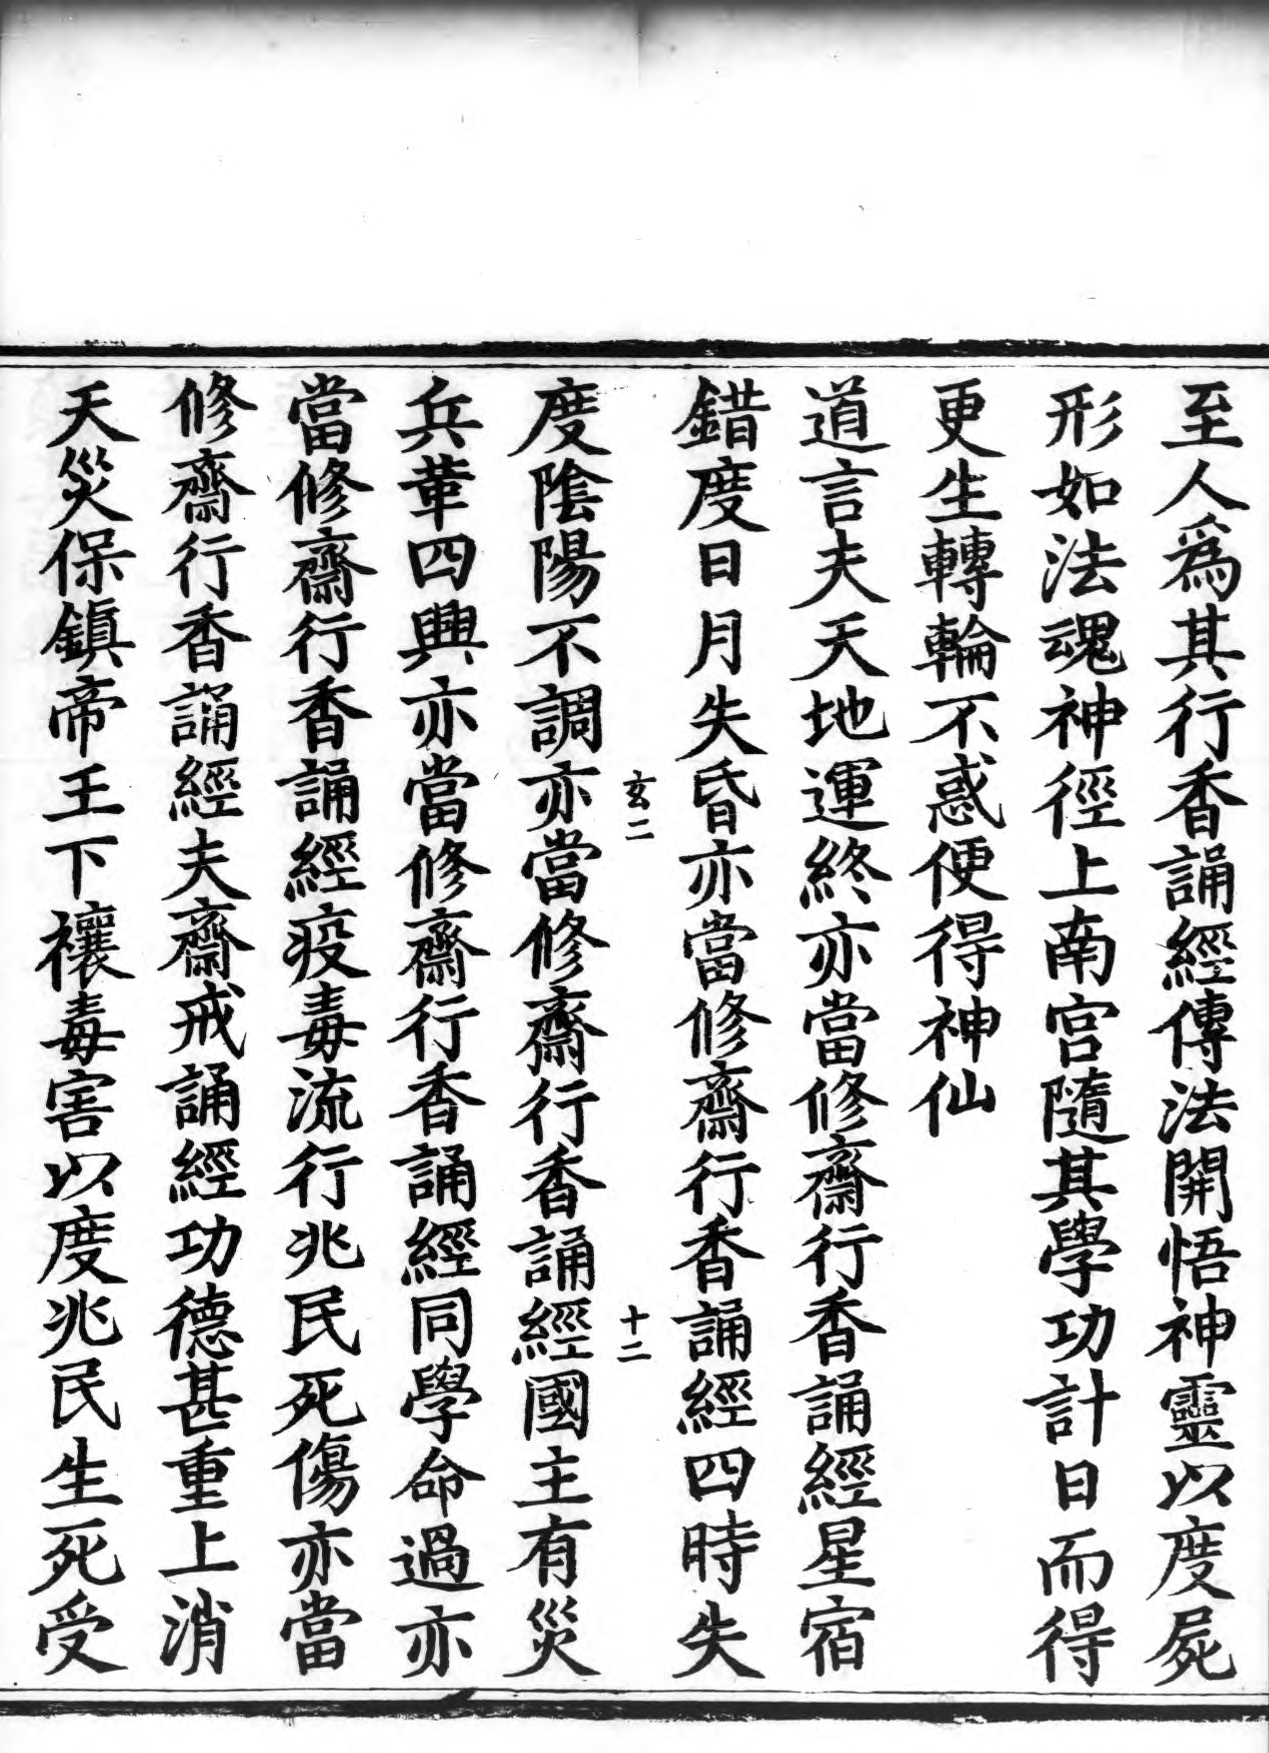 至人爲其行香誦經傳法開悟神靈以度屍
形如法魂神徑上南宮隨其學功計日而得
更生轉輪不惑便得神仙
道言夫天地運終亦當修齋行香誦經星宿
錯度日月失昏亦當修齋行香誦經四時失
玄二
十二
度陰陽不調亦當修齋行香誦經國主有災
兵革四興亦當修齋行香誦經同學命過亦
當修齋行香誦經疫毒流行兆民死傷亦當
修齋行香誦經夫齋戒誦經功德甚重上消
天災保鎮帝王下禳毒害以度兆民生死受